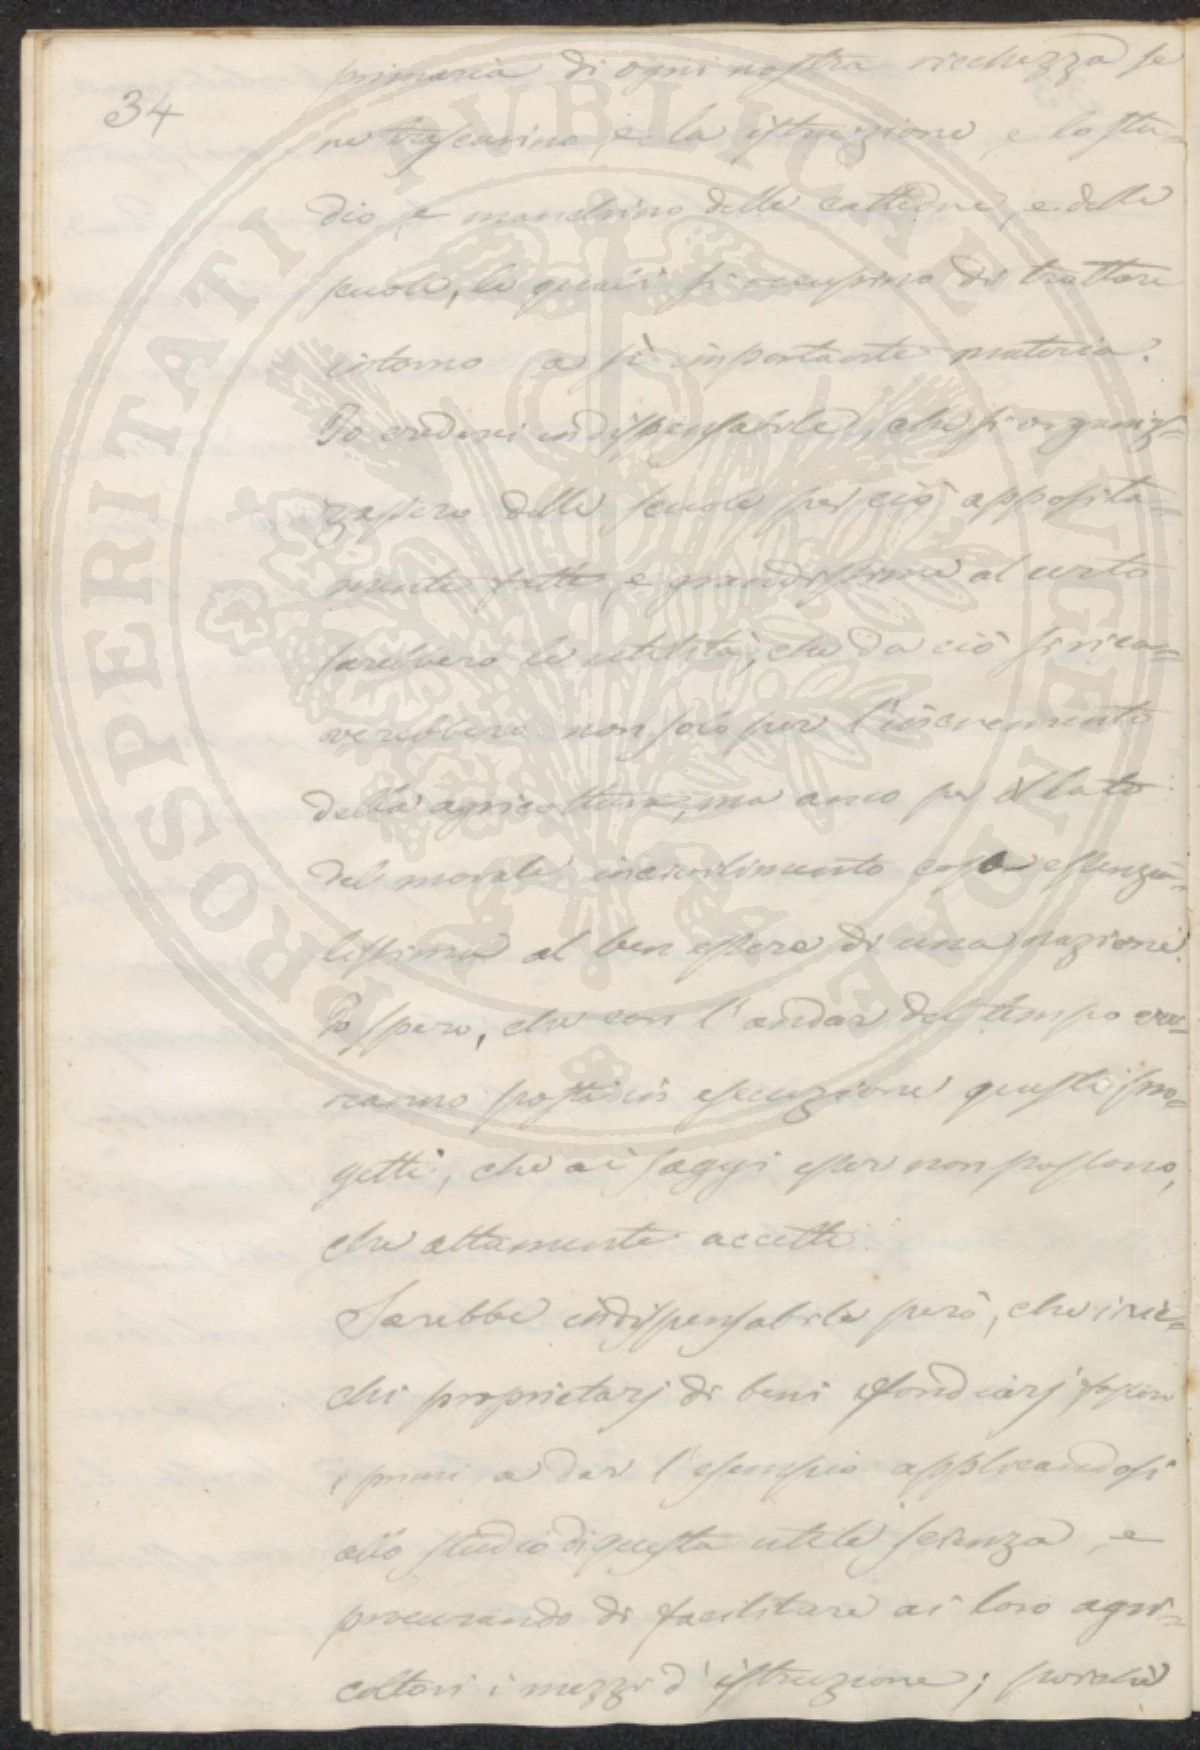 34
primaria di ogni nostra ricchezza se
ne trascurino, e la istruzione, e lo stu=
dio, e manchino delle cattedre, e delle
scuole, le quali si occupino di trattare
intorno a sì importante materia?
Io crederei indispensabile, che si organiz=
zassero delle scuole per ciò apposita=
mente fatte, e grandissime al certo
sarebbero le utilità, che da ciò si rica=
verebbero non solo per l'incremento
della agricoltura, ma anco per il lato
del morale incivilimento cosa essenzia=
lissima al ben essere di una nazione.
Io spero, che con l'andar del tempo ver=
ranno posti in esecuzione questi pro=
getti, che ai saggi esser non possono,
che altamente accetti.
Sarebbe indispensabile però, che i ric=
chi proprietarj di beni fondiarj fossero
i primi a dar l'esempio applicandosi
allo studio di questa utile scienza, e
procurando di facilitare ai loro agri=
coltori i mezzi d'istruzione; poichè
PROSPERITATI PUBLICAE AUGENDAE